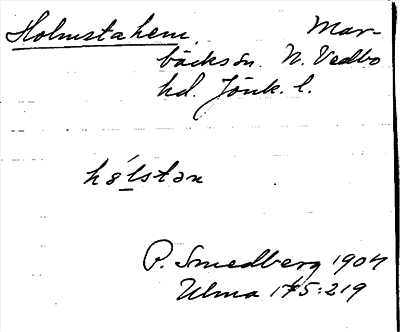 Holmstahem. Mar-
bäcks sn. N. Vedbo
hd. Jönk. l.
hólstan
P. Smedberg 1904
Ulma 175:219